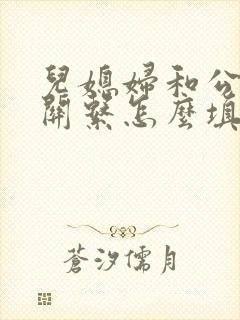 兒媳婦和公
關繫怎麼填
蒼汐儒月